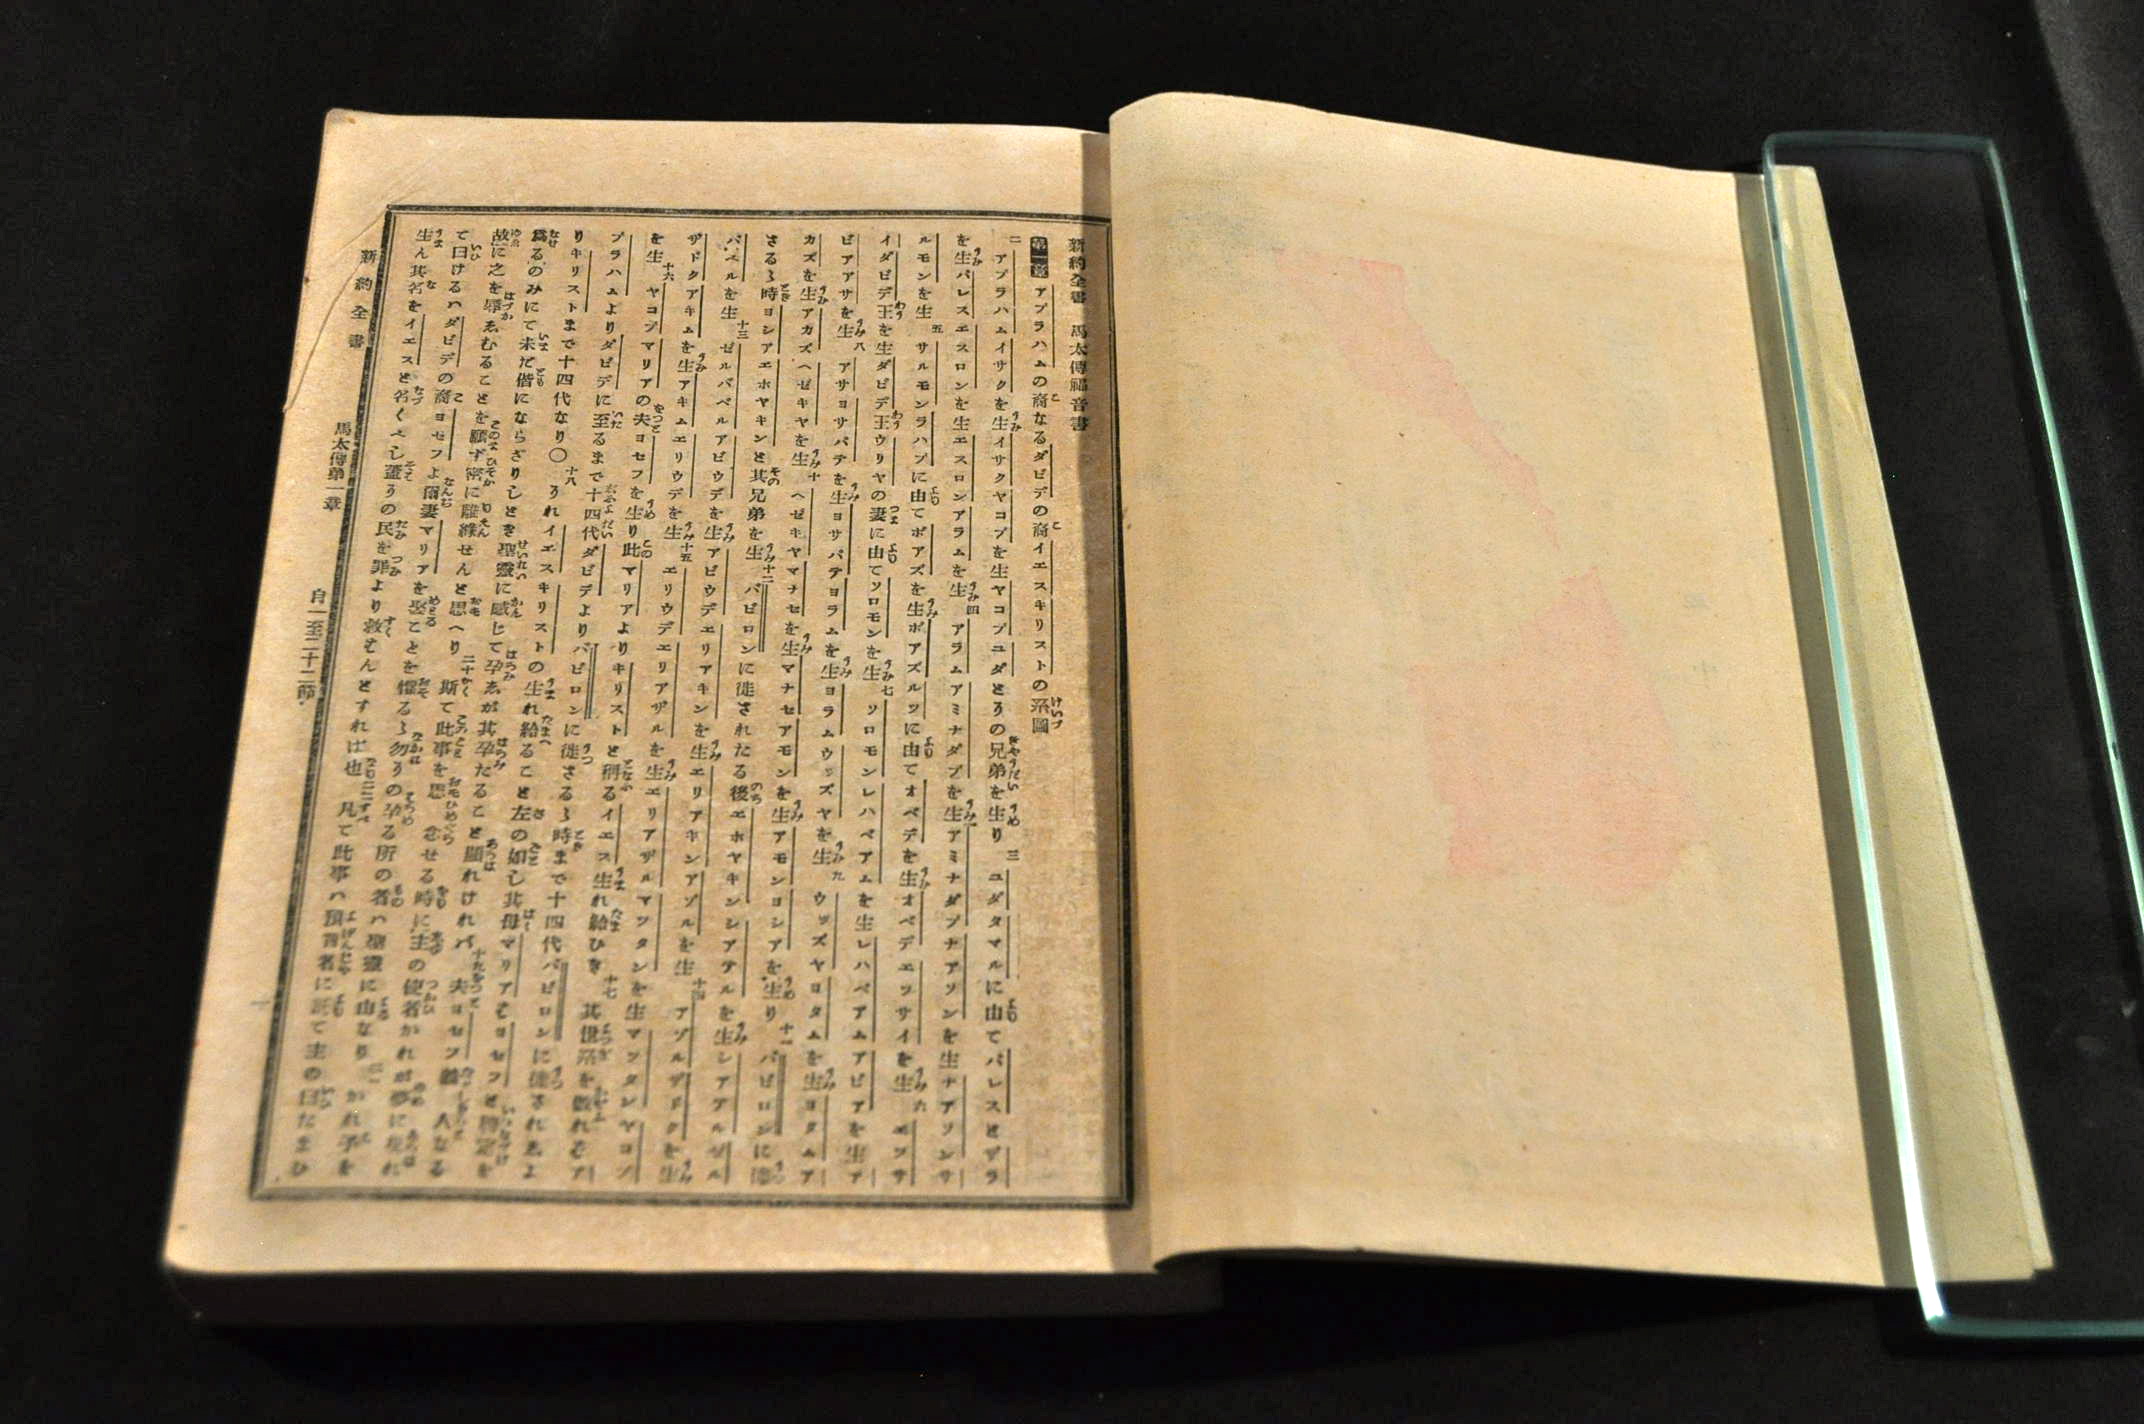 新約全書 馬太傳福音書
第一章 アブラハムの裔なるダビデの裔イエスキリストの系圖
二 アブラハムイサクを生イサクヤコブを生ヤコブユダとその兄弟を生り 三 ユダタマルに由てパレスとザラ
を生パレスエスロンを生エスロンアラムを生 四 アラムアミナダブを生アミナダブナアソンを生ナアソンサ
ルモンを生 五 サルモンラハブに由てボアズを生ボアズルツに由てオベデを生オベデエッサイを生 六 エッサ
イダビデ王を生ダビデ王ウリヤの妻に由てソロモンを生 七 ソロモンレハベアムを生レハベアムアビアを生ア
ビアアサを生 八 アサヨサパテを生ヨサパテヨラムを生ヨラムウッズヤを生 九 ウッズヤヨタムを生ヨタムア
カズを生アカズヘゼキヤを生 十 ヘゼキヤマナセを生マナセアモンを生アモンヨシアを生り 十一 バビロンに徙
さるゝ時ヨシアエホヤキンと其兄弟を生 十二 バビロンに徙されたる後エホヤキンシアテルを生シアテルゼル
バベルを生 十三 ゼルバベルアビウデを生アビウデエリアキンを生エリアキンアゾルを生 十四 アゾルザドクを生
ザドクアキムを生アキムエリウデを生 十五 エリウデエリアザルを生エリアザルマッタンを生マッタンヤコブ
を生 十六 ヤコブマリアの夫ヨセフを生り此マリアよりキリストと稱るイエス生れ給ひき 十七 其世系を數れバア
ブラハムよりダビデに至るまで十四代ダビデよりバビロンに徙さるゝ時まで十四代バビロンに徙されしよ
りキリストまで十四代なり〇 十八 それイエスキリストの生れ給ること左の如し其母マリア ヨセフと聘定を
爲るのみにて未だ偕にならざりしとき聖靈に感じて孕しが其孕たること顯れけれバ 十九 夫ヨセフ義人なる
故に之を辱しむることを願ず密に離縁せんと思へり 二十 斯て此事を思念せる時に主の使者かれが夢に現れ
て曰けるハダビデの裔ヨセフよ爾妻マリアを娶ことを懼るゝ勿その孕る所の者ハ聖靈に由なり かれ子を
生ん其名をイエスと名くべし蓋その民を罪より救んとすれば也 凡て此事ハ預言者に託て主の曰たまひ
新約全書 馬太傳第一章 自一至二十二節